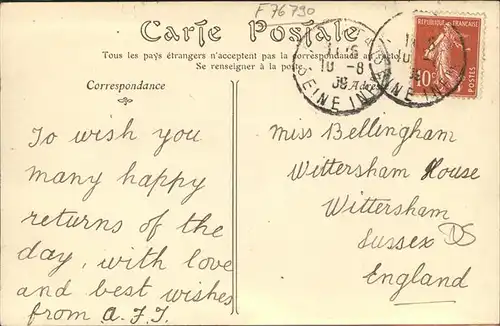 F 76790
Carte Postale
Tous les pays étrangers n'acceptent pas la correspondance au recto
Se renseigner à la poste
Correspondance
Adresse
RÉPUBLIQUE FRANÇAISE
10c
POSTES
10 -8
SEINE INF
To wish you
many happy
returns of the
day, with love
and best wishes
from A.F.J.
Miss Bellingham
Wittersham House
Wittersham
Sussex DS
England